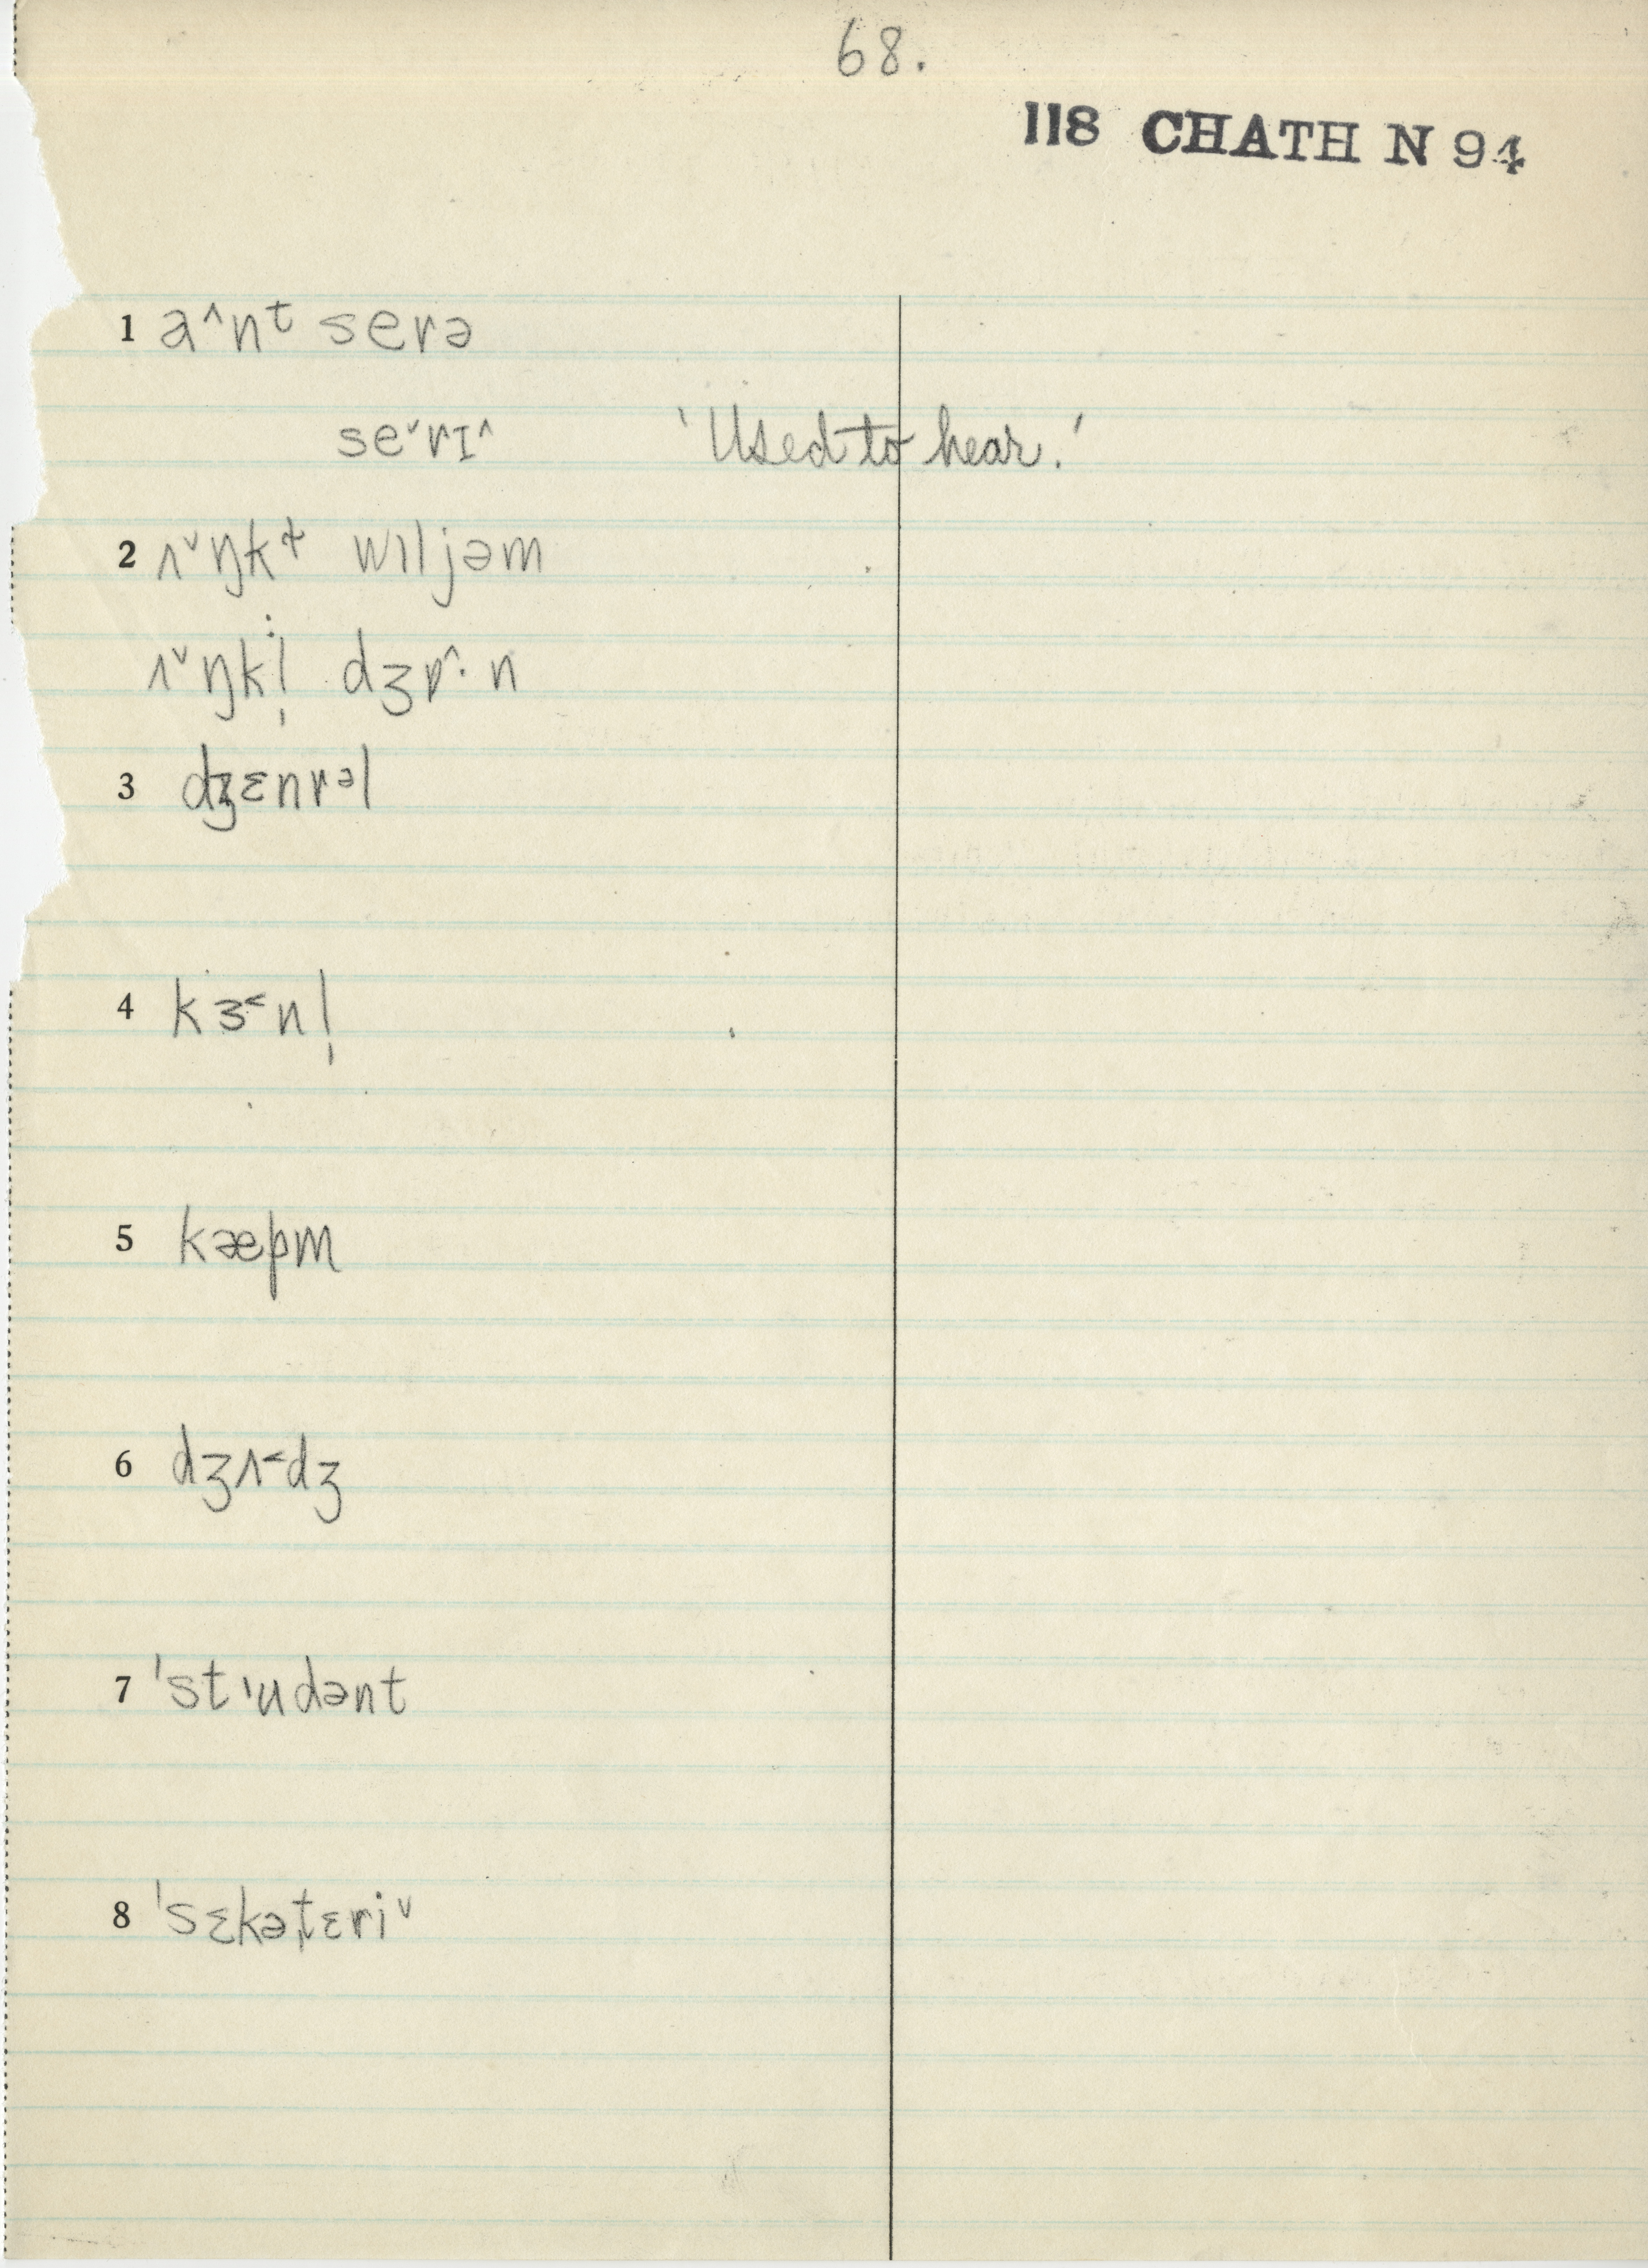 68.
118 CHATH N 94
1 a^nᵗ serə
seˇrɪ^ 'Used to hear.'
2 ʌˇŋkᵗ wɪljəm
ʌˇŋkl̩ dʒɒ^·n
3 dʒɛnrᵊl
4 kɜ˂nl̩
5 kæpm
6 dʒʌ˂dʒ
7 'stɪudənt
8 'sɛkəˌtɛriˇ